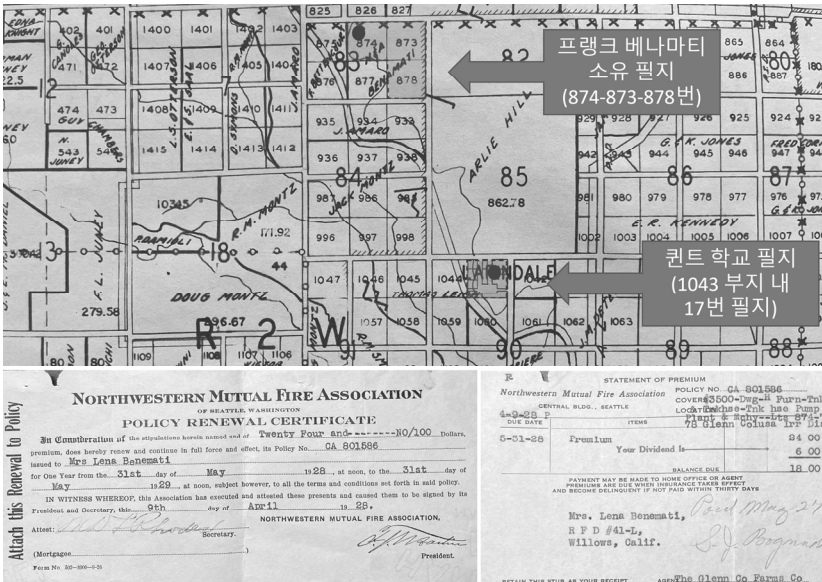 825 826 827
EDNA KNIGHT
402 401 1400 1401 1402 1403
471 472 1407 1406 1405 1404
12
474 473 1408 1409 1410 1411
GUY
N. JUNEY
543 544
CHAMBERS
1415 1414 1413 1412
L.S. OTTERSON
E. J. S. GAAL
7
O. SYMONS
J. AMARO
875 874 873
83
876 877 878
BENAMATI
82
865 864
80
887
935 934 933
J. AMARO
936 937 938
84
JACK MONTZ
987 986 985
996 997 998
ARLIE HILL
85
862.78
929 928 927 926 925 924
G. & K. JONES
942 943 944 945 946 947
86
87
981 980 979 978 977 976
E. R. KENNEDY
1002 1003 1004 1005 1006
프랭크 베나마티
소유 필지
(874-873-878번)
10345
R. M. MONTZ
171.92
P. DAMIOLI
18
44
3
F. L. JUNEY
279.58
DOUG MONTZ
296.67
R 2 W
1047 1046 1045 1044
LARONDALE
1042
1057 1058 1059 1060 1061 1062 1063
91 90 89 88
80 80
1109 1108 1107 1106
퀸트 학교 필지
(1043 부지 내
17번 필지)
Attach this Renewal to Policy
NORTHWESTERN MUTUAL FIRE ASSOCIATION
OF SEATTLE, WASHINGTON
POLICY RENEWAL CERTIFICATE
In Consideration of the stipulations herein named and of Twenty Four and--------NO/100 Dollars,
premium, does hereby renew and continue in full force and effect, its Policy No. CA 801586
issued to Mrs Lena Benemati
for One Year from the 31st day of May 1928, at noon, to the 31st day of
May 1929, at noon, subject however, to all the terms and conditions set forth in said policy.
IN WITNESS WHEREOF, this Association has executed and attested these presents and caused them to be signed by its
President and Secretary, this 9th day of April 1928.
NORTHWESTERN MUTUAL FIRE ASSOCIATION,
Attest:
Secretary.
President.
(Mortgagee
Form No.
R STATEMENT OF PREMIUM
Northwestern Mutual Fire Association
CENTRAL BLDG., SEATTLE
POLICY NO. CA 801586
COVERS $3500-Dwg-H Furn-Tnk
LOCATION & Tnkhse-Tnk hse Pump
Plant & Mchy--Lts 874-
78 Glenn Colusa Irr Dis
4-9-28 P
DUE DATE ITEMS
5-31-28 Premium 24 00
Your Dividend Is 6 00
BALANCE DUE 18 00
PAYMENT MAY BE MADE TO HOME OFFICE OR AGENT
PREMIUMS ARE DUE WHEN INSURANCE TAKES EFFECT
AND BECOME DELINQUENT IF NOT PAID WITHIN THIRTY DAYS
Paid May 27
Mrs. Lena Benemati,
R F D #41-L,
Willows, Calif.
RETAIN THIS STUB AS YOUR RECEIPT AGENT The Glenn Co Farms Co